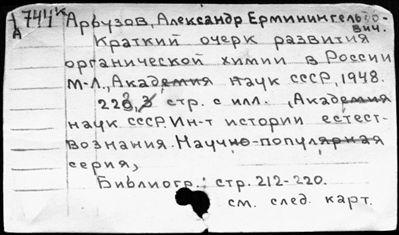 А 7411к Арбузов, Александр Ерминингельдо-
вич.
Краткий очерк развития
органической химии в России
М-Л., Академия наук СССР, 1948.
228, 3 стр. с илл. (Академия
наук СССР. Ин-т истории естест-
вознания. Научно-популярная
серия)
Библиогр.: стр. 212-220.
см. след. карт.